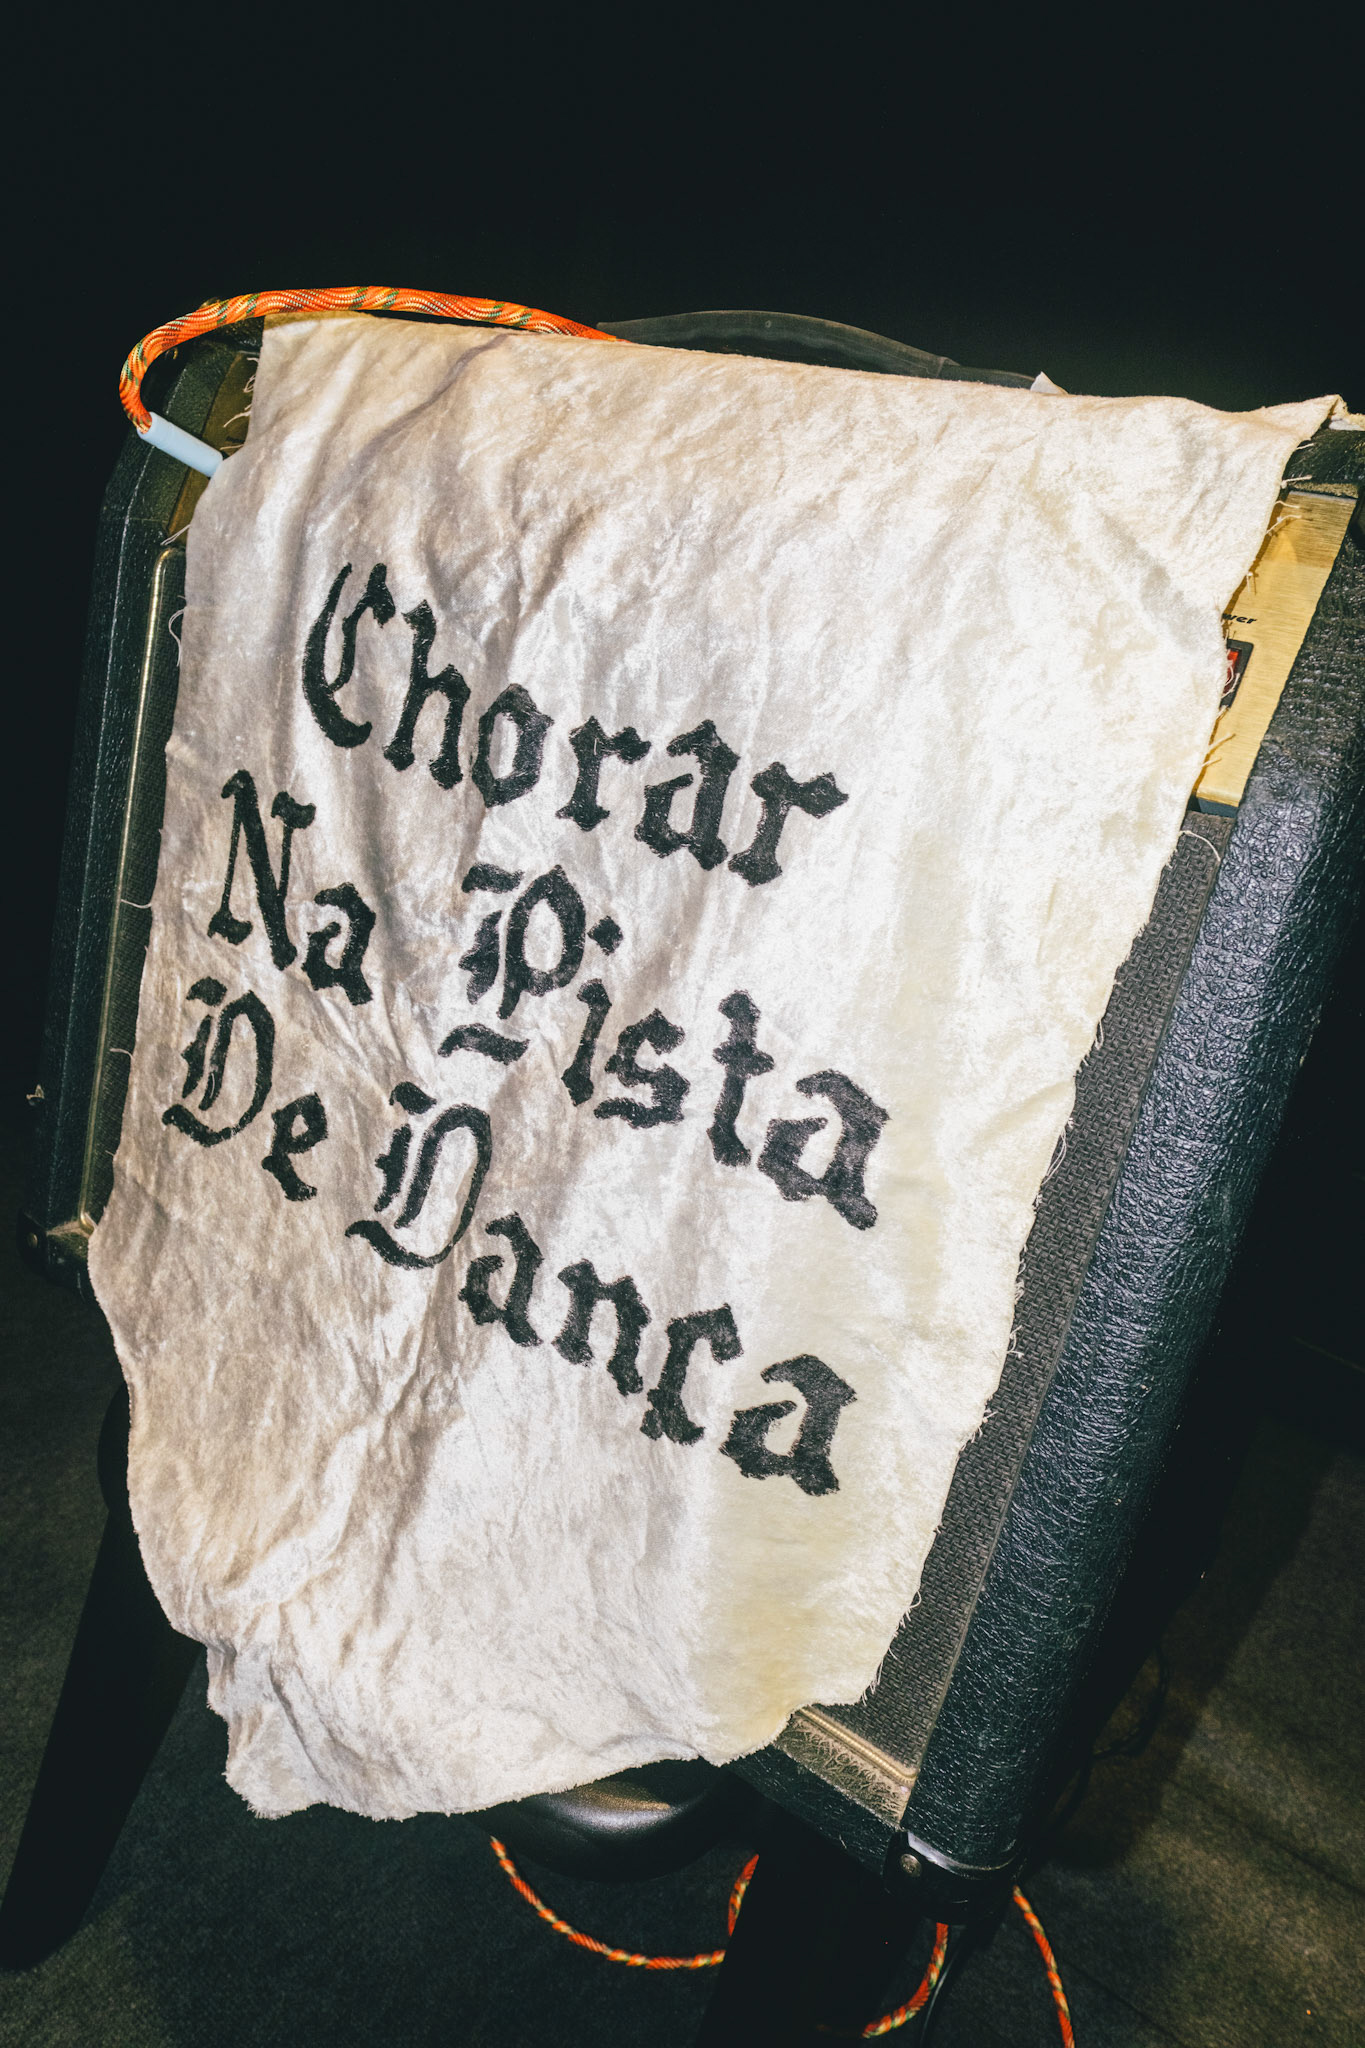 Chorar
Na Pista
De Danca
wer